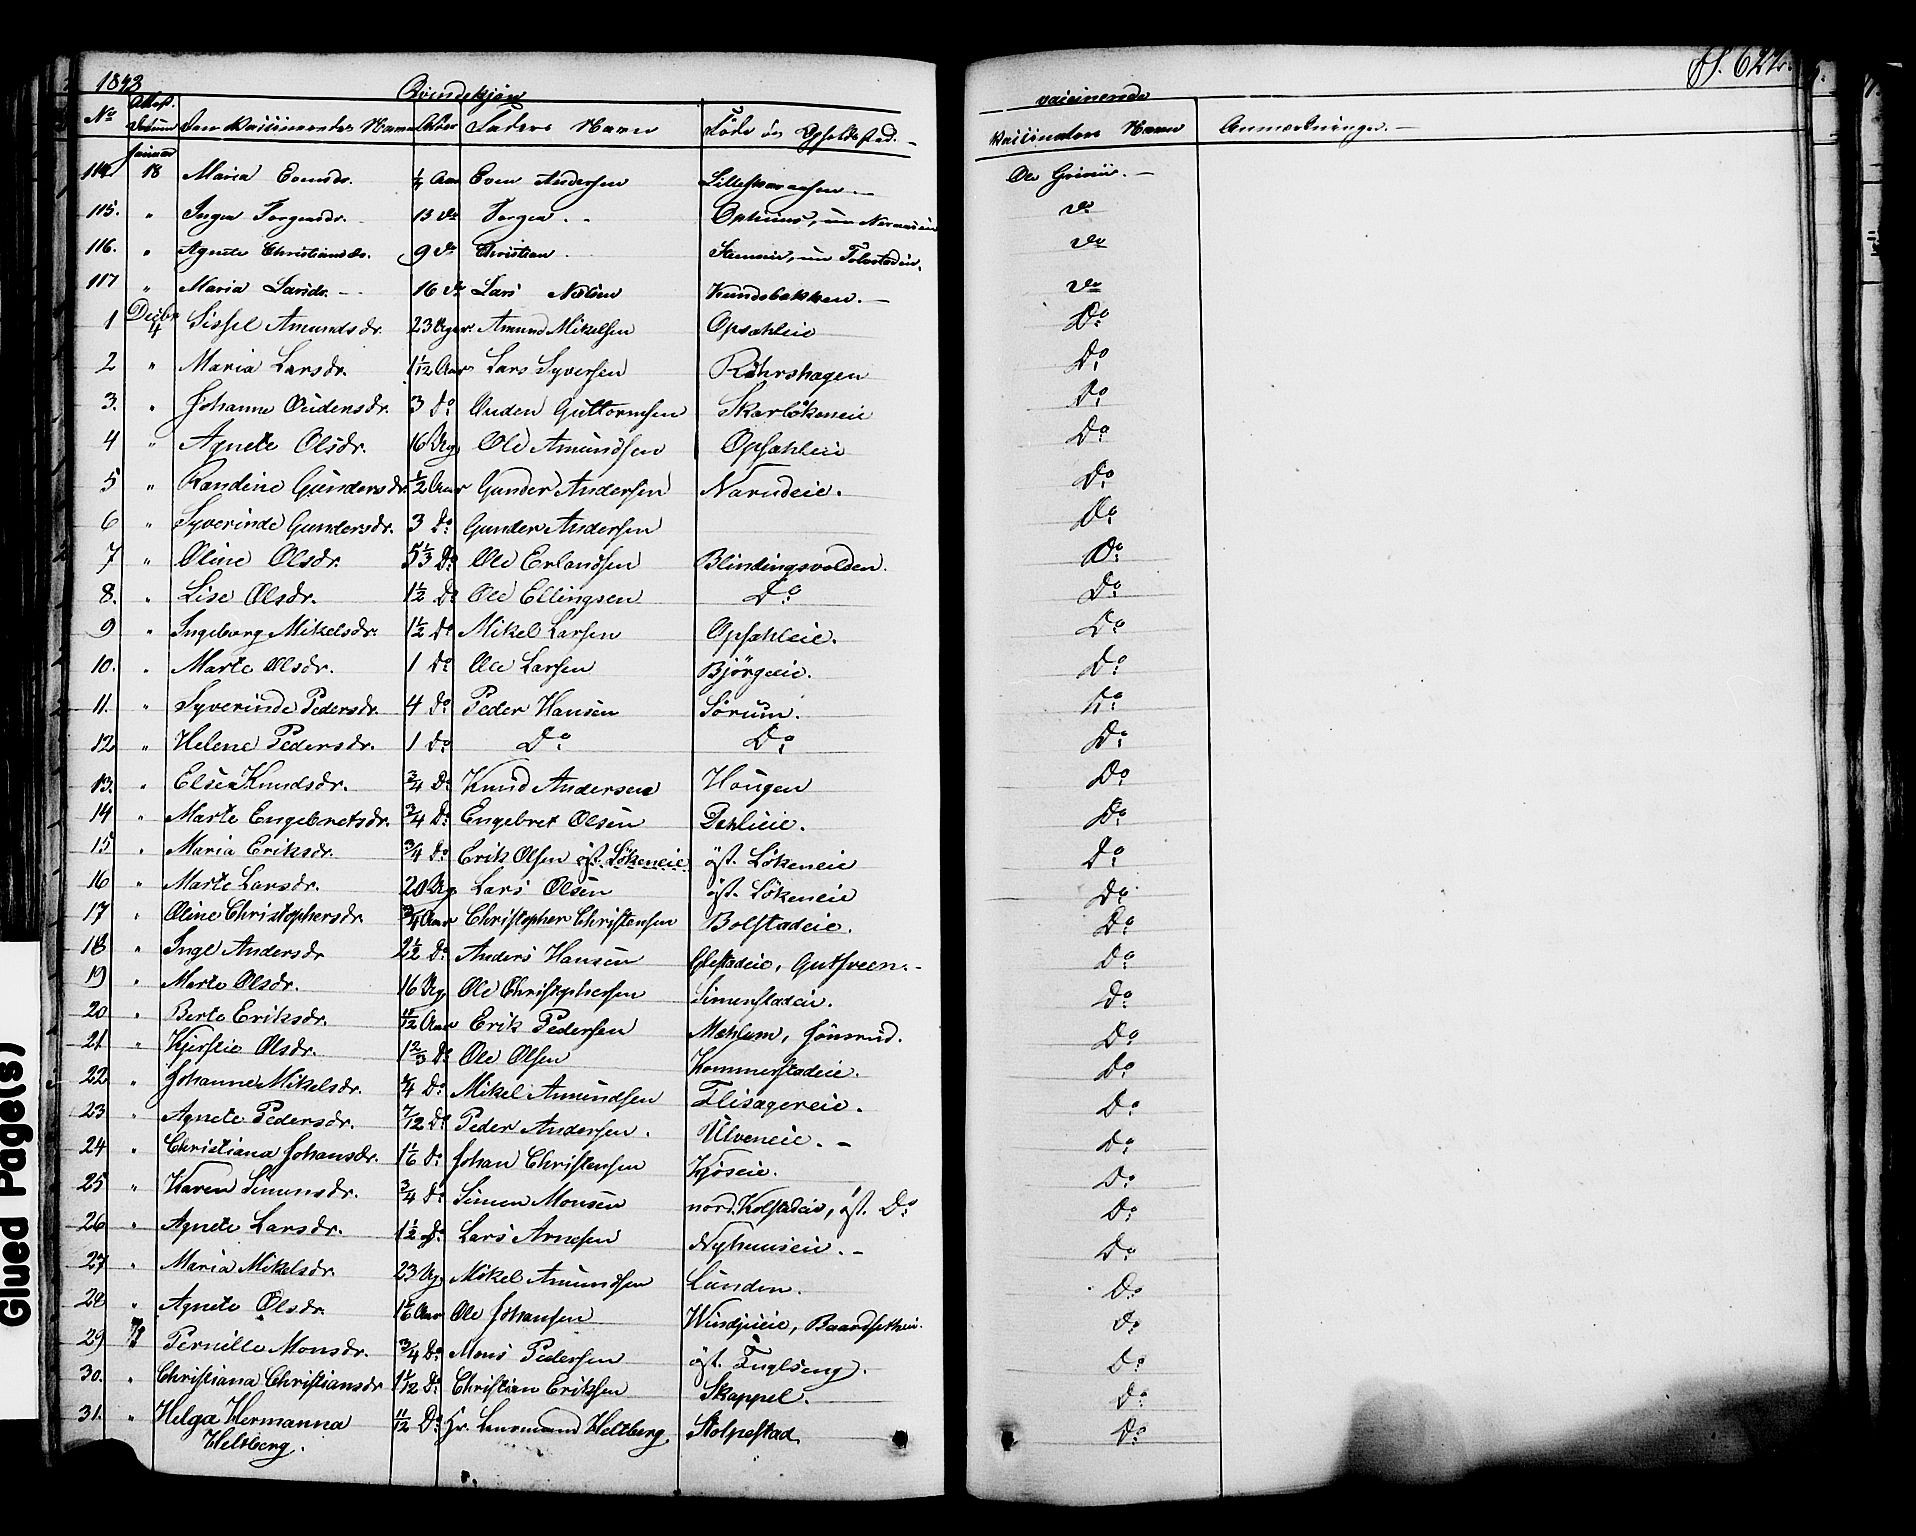 1843 Qvindekjøn vaccinerede S. 622.
No Attest. Datum Den Vaccineredes Navn Alder Faders Navn Føde og Opholdssted. Vaccinateurs Navn Anmærkninger.
Januar
114. 18 Maria Evensdr. Aar Even Andersen Ole
115. " Inger Jorgensdr. 13 do Jorgen do
116. " Agnete Christiansdr. 9 do Christian do
117 " Maria Larsdr. 16 do Lars Nielsen Knudsbakken. do
1 Decbr 4 Sissel Amundsdr. 23 Uger Amund Mikelsen Opsahleie Do
2 " Maria Larsdr. 1 1/12 Aar Lars Syversen Röhrshagen Do
3. " Johanne Oudensdr. 3 Do Ouden Guttormsen Skarlökeneie Do
4 " Agnete Olsdr. 16 Ug. Ole Amundsen Opsahleie Do
5 " Randine Gundersdr. 1/2 Aar Gunder Andersen Narudeie. Do
6 " Syverinde Gundersdr. 3 Do Gunder Andersen Do
7 " Oline Olsdr. 5 1/3 Do Ole Erlandsen Blindingsvolden. Do
8. " Lise Olsdr. 1 1/2 Do Ole Ellingsen Do Do
9 " Ingeborg Mikelsdr. 1 1/2 Do Mikel Larsen Opsahleie. Do
10. " Marte Olsdr. 1 Do Ole Larsen Bjørgeie. Do
11. " Syverinde Pedersdr. 4 Do Peder Hansen Sörum. Do
12 " Helene Pedersdr. 1 Do Do Do Do
13. " Elsie Knudsdr. 3/4 Do Knud Andersen Hougen Do
14 " Marte Engebretsdr. 3/4 Do Engebret Olsen Dehlieie. Do
15 " Maria Eriksdr. 3/4 Do Erik Olsen öst. Lökeneie öst. Lökeneie Do
16 " Marte Larsdr. 20 Ug. Lars Olsen öst. Lökeneie Do
17 " Oline Christophersdr. 3/4 Aar Christopher Christensen Bolstadeie. Do
18 " Inge Andersdr 2 1/2 Do Anders Hansen Glestadeie, Gutsveen. Do
19 " Marte Olsdr. 16 Ug. Ole Christophersen Simenstadeie. Do
20 " Berte Eriksdr. 11/12 Aar Erik Pedersen Mæhlum, Jönsrud. Do
21. " Kjerstie Olsdr. 1 2/3 Do Ole Olsen Kommerstadeie. Do
22 " Johanne Mikelsdr. 3/4 Do Mikel Amundsen Flisagereie. Do
23 " Agnete Pedersdr. 7/12 Do Peder Andersen. Ulveneie. Do
24 " Christiana Johansdr. 1 1/6 Do Johan Christensen Kjöseie. Do
25 " Karen Simensdr. 3/4 Do Simen Monsen nord. Kolstadeie, öst. Do Do
26 " Agnete Larsdr. 1 1/2 Do Lars Arnesen Nyhuuseie. Do
27 " Maria Mikelsdr. 23 Ug. Mikel Amundsen Lunden. Do
28 " Agnete Olsdr. 1 1/6 Aar Ole Johansen Windjueie, Baardsethei. Do
29 Pernille Monsdr. 3/4 Do Mons Pedersen öst. Fuglseng. Do
30. " Christiana Christiansdr 1 1/12 Do Christian Eriksen Skappel. Do
31. " Helga Hermanna Heltberg. 11/12 Do Hr. Heltberg Stolpestad Do
Glued Page(s)